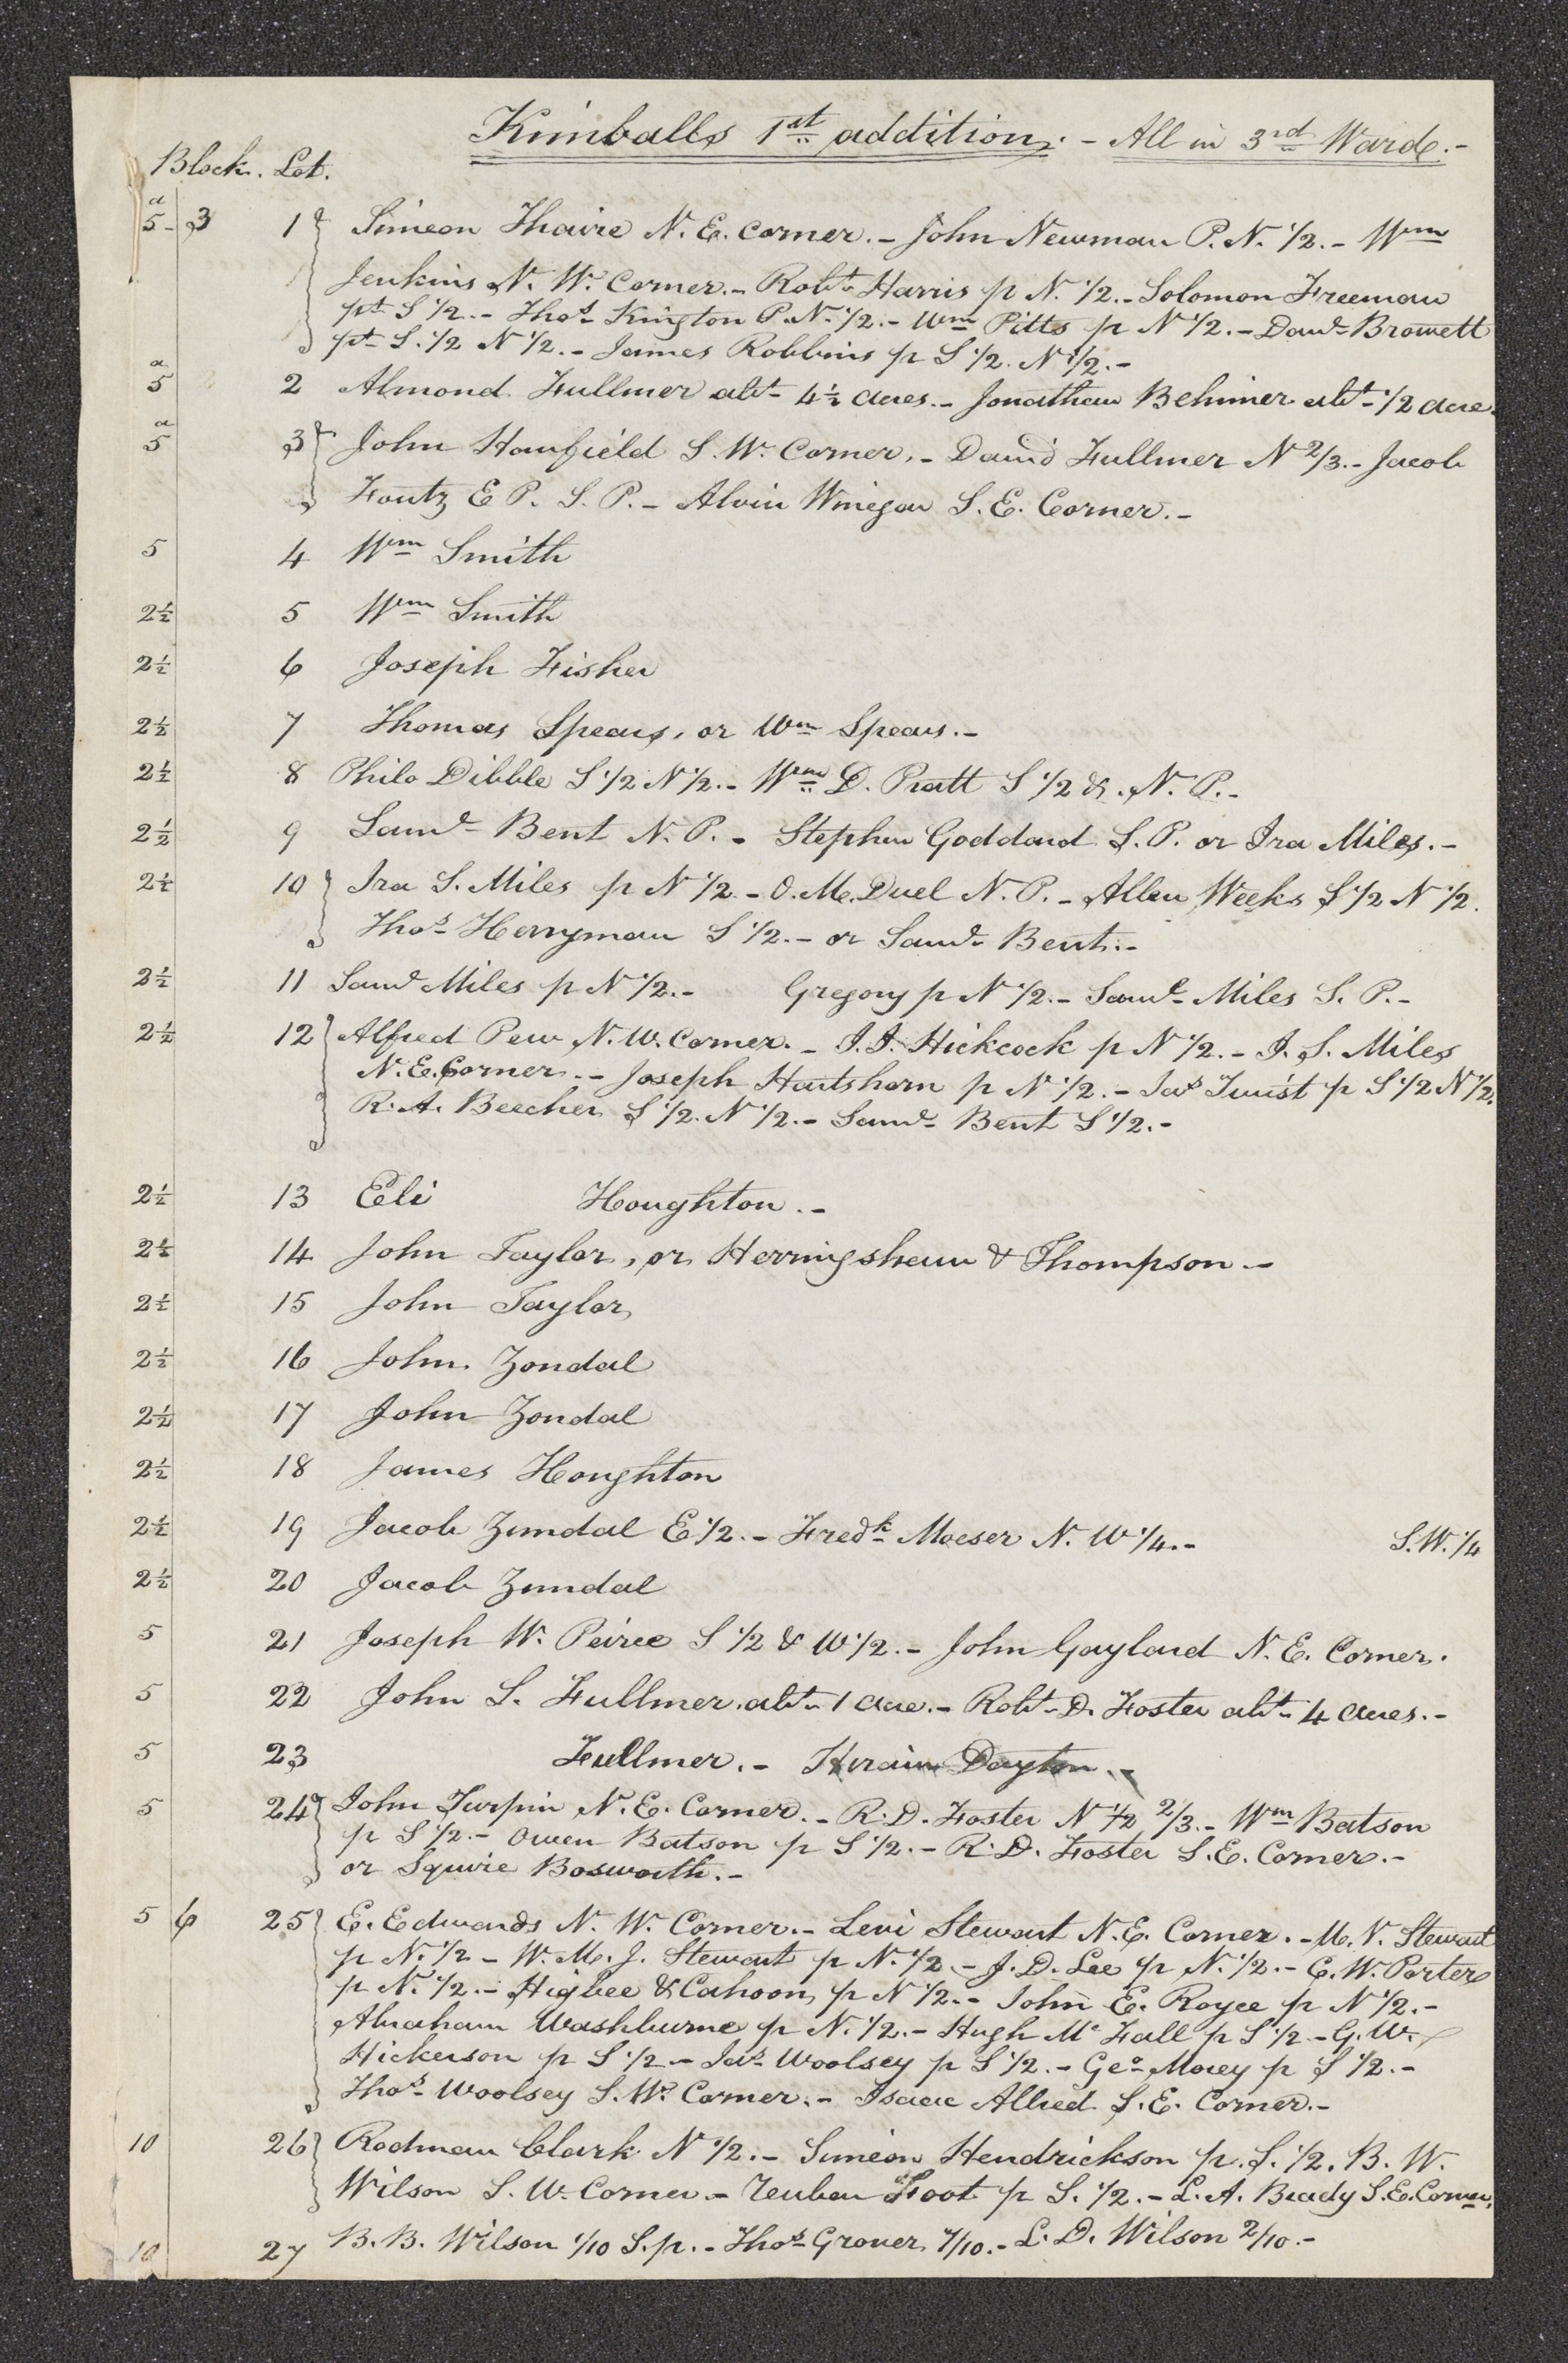 Kimballs 1st addition. - All in 3rd Ward.-
Block. Lot.
a
5- 3 1 Simeon Thaire N. E. corner.- John Newman P. N. 1/2.- Wm
Jenkins N. W. Corner.- Robt Harris p N. 1/2.- Solomon Freeman
pt S 1/2.- Thos Kington P. N. 1/2.- Wm Pitts p N 1/2.- Danl Browett
pt S. 1/2 N 1/2.- James Robbins p S 1/2. N 1/2.-
a
5 2 Almond Fullmer abt 4 1/2 acres.- Jonathan Behimer abt 1/2 acre.
a
5 3 John Hanfield S. W. Corner.- David Fullmer N 2/3.- Jacob
Foutz E P. S. P.- Alvin Winegar S. E. Corner.-
5 4 Wm Smith
2 1/2 5 Wm Smith
2 1/2 6 Joseph Fisher
2 1/2 7 Thomas Spears, or Wm Spears.-
2 1/2 8 Philo Dibble S 1/2 N 1/2.- Wm D. Pratt S 1/2 & N. P.-
2 1/2 9 Saml Bent N. P.- Stephen Goddard S. P. or Ira Miles.-
2 1/2 10 Ira S. Miles p N 1/2 - O. M. Duel N. P.- Allen Weeks S 1/2 N 1/2.
Thos Herryman S 1/2.- or Saml Bent.-
2 1/2 11 Saml Miles p N 1/2.- Gregory p N 1/2.- Saml Miles S. P.-
2 1/2 12 Alfred Pew N. W. Corner.- J. J. Hickcock p N 1/2.- I. S. Miles
N. E. Corner.- Joseph Hartshorn p N 1/2.- Jas Twist p S 1/2 N 1/2.
R. A. Beecher S 1/2. N 1/2.- Saml Bent S 1/2.-
2 1/2 13 Eli Houghton.-
2 1/2 14 John Taylor, or Herringshaw & Thompson.-
2 1/2 15 John Taylor
2 1/2 16 John Zondal
2 1/2 17 John Zondal
2 1/2 18 James Houghton
2 1/2 19 Jacob Zundal E 1/2.- Fredk Moeser N. W 1/4.- S. W. 1/4
2 1/2 20 Jacob Zundal
5 21 Joseph W. Peirce S 1/2 & W 1/2.- John Gaylord N. E. Corner.
5 22 John S. Fullmer abt 1 acre.- Robt D. Foster abt 4 acres.-
5 23 Fullmer.- Hiram Dayton.-
5 24 John Turpin N. E. Corner.- R. D. Foster N 1/2 2/3.- Wm Batson
p S 1/2.- Owen Batson p S 1/2.- R. D. Foster S. E. Corner.-
or Squire Bosworth.-
5 6 25 E. Edwards N. W. Corner.- Levi Stewart N. E. Corner.- M. V. Stewart
p N. 1/2 - W. M. J. Stewart p N. 1/2 - J. D. Lee p N. 1/2.- C. W. Porter
p N. 1/2.- Higbee & Cahoon p N 1/2.- John E. Royce p N 1/2.-
Abraham Washburne p N. 1/2.- Hugh Mc Fall p S 1/2 - G. W.
Hickerson p S 1/2 - Jas Woolsey p S 1/2.- Geo Morey p S 1/2.-
Thos Woolsey S. W. Corner.- Isaac Allred S. E. Corner.-
10 26 Rodman Clark N 1/2.- Simeon Hendrickson p. S. 1/2. B. W.
Wilson S. W. Corner - Reuben Foot p S. 1/2.- L. A. Brady S. E. Corner.
10 27 B. B. Wilson 1/10 S. p.- Thos Grover 7/10.- L. D. Wilson 2/10.-